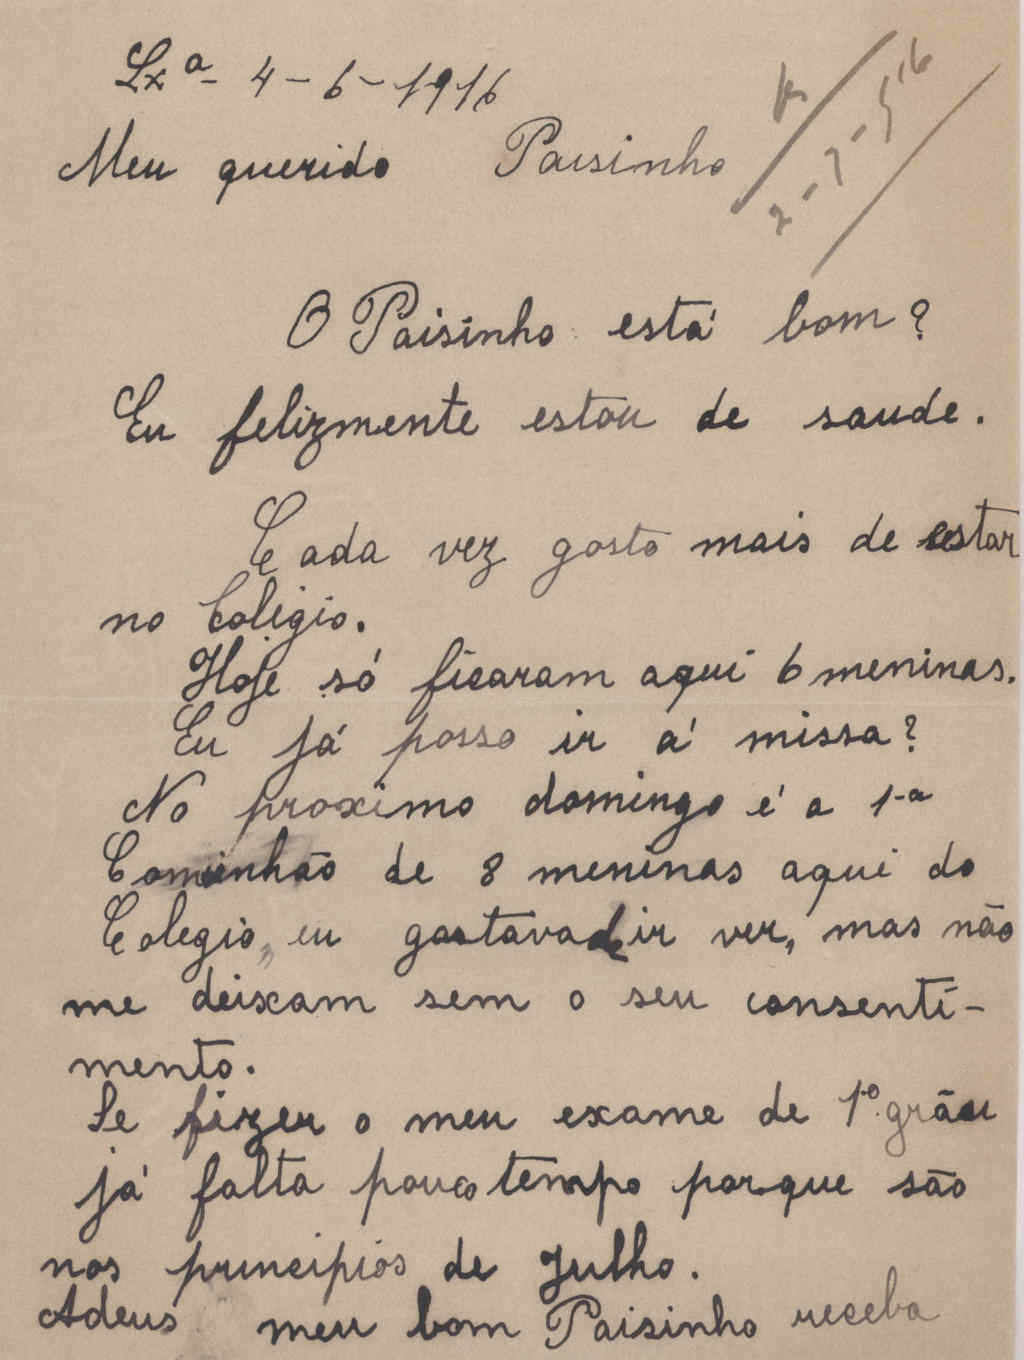 Lxª 4-6-1916
Meu querido Paisinho
R
2-7-916
O Paisinho está bom?
Eu felizmente estou de saude.
Cada vez gosto mais de estar
no Colégio.
Hoje só ficaram aqui 6 meninas.
Eu já posso ir á missa?
No proximo domingo é a 1ª
Comunhão de 8 meninas aqui do
Colegio, eu gostava de ir ver, mas não
me deixam sem o seu consenti-
mento.
Se fizer o meu exame de 1º grău
já falta pouco tempo porque são
nos principios de Julho.
Adeus meu bom Paisinho receba